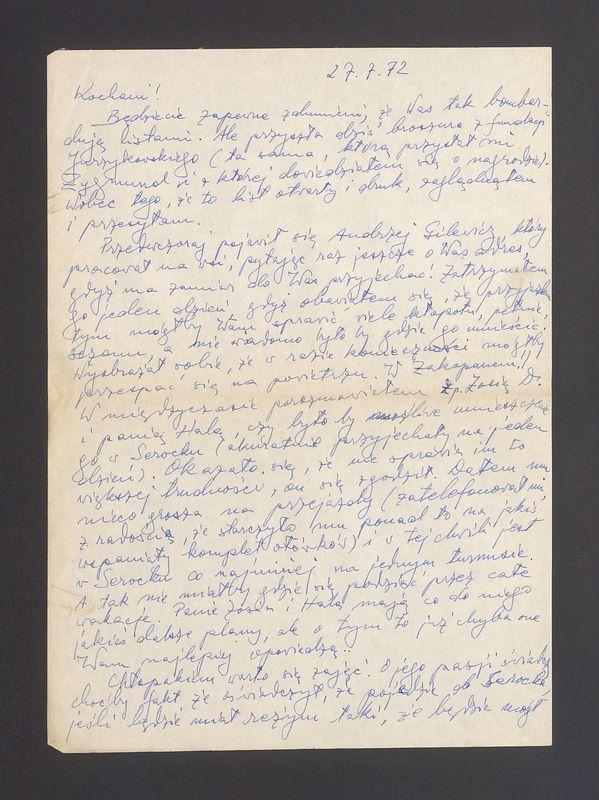 27.7.72
Kochani!
Będziecie zapewne zdumieni, że Was tak bombar-
dują listami. Ale przyszła dziś broszura z fundacji
Jurzykowskiego (ta sama, którą przysłał mi
Zygmunt i z której dowiedziałem się o nagrodzie).
Wobec tego, że to list otwarty i druk, zaglądnąłem
i przesyłam.
Przedwczoraj pojawił się Andrzej Gilewicz, który
pracował na wsi, pytając raz jeszcze o Was adres,
gdyż ma zamiar do Was przyjechać! Zatrzymałem
go jeden dzień gdyż obawiałem się, że przyjazdem
tym mógłby Wam sprawić wiele kłopotu, pełnia
sezonu, a nie wiadomo było by gdzie go umieścić.
Wyobrażał sobie, że w razie konieczności mógłby
przespać się na powietrzu. W Zakopanem!!!
W międzyczasie porozmawiałem z p. Zosią D.
i panią Halą, czy było by możliwe umieszczenie
go w Serocku (akuratnie przyjechały na jeden
dzień). Okazało się, że nie sprawia im to
większej trudności, on się zgodził. Dałem mu
nieco grosza na przejazdy (zatelefonował mi
z radością, że starczyło mu ponad to na jakiś
wspaniały komplet ołówków) i w tej chwili jest
w Serocku co najmniej na jednym turnusie.
A tak nie miałby gdzie się podziać przez całe
wakacje. Panie Zosia i Hala mają co do niego
jakieś dalsze plany, ale o tym to już chyba one
Wam najlepiej opowiedzą.
Chłopakiem warto się zająć. O jego pasji świadczy
choćby fakt, że oświadczył, że pojedzie do Serocka,
jeśli będzie miał reżym taki, że będzie mógł